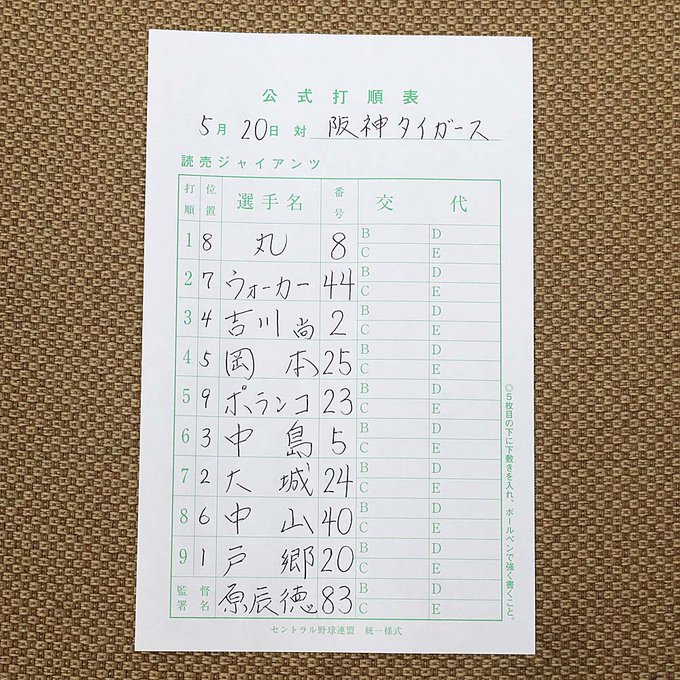 公式打順表
5月20日 対 阪神タイガース
読売ジャイアンツ
打順 位置 選手名 番号 交代
1 8 丸 8 B D C E
2 7 ウォーカー 44 B D C E
3 4 吉川尚 2 B D C E
4 5 岡本 25 B D C E
5 9 ポランコ 23 B D C E
6 3 中島 5 B D C E
7 2 大城 24 B D C E
8 6 中山 40 B D C E
9 1 戸郷 20 B D C E
監督署名 原辰徳 83 B D C E
セントラル野球連盟 統一様式
◎5枚目の下に下敷きを入れ、ボールペンで強く書くこと。